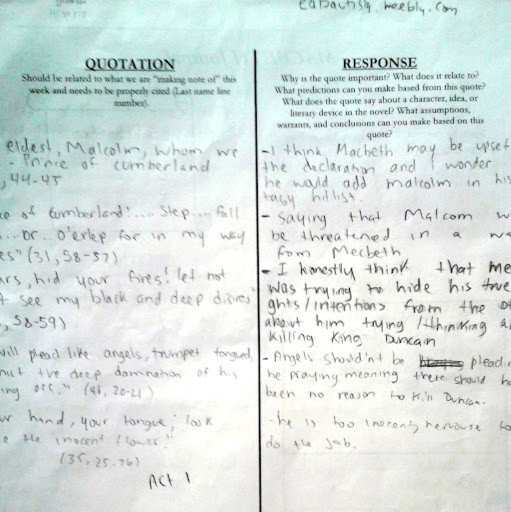 eabautista.weebly.com
QUOTATION
Should be related to what we are "making note of" this
week and needs to be properly cited (Last name line
number).
eldest, Malcolm, whom we
- Prince of cumberland
, 44-45
ce of Cumberland! .... Step.... fall
...Or.. O'erlep for in my way
es" (31, 58-57)
ars, hid your fires! let not
t see my black and deep disires"
, 58-59)
will plead like angels, trumpet tongued,
the deep damnation of his
ing off." (41, 20-21)
ur hand, your tongue; look
e the inocent flower."
(35, 25-76)
Act 1
RESPONSE
Why is the quote important? What does it relate to?
What predictions can you make based from this quote?
What does the quote say about a character, idea, or
literary device in the novel? What assumptions,
warrants, and conclusions can you make based on this
quote?
- I think Macbeth may be upset
the declaration and I wonder
he would add malcolm in his
hitlist.
- saying that Malcom w
be threatened in a wa
from Mecbeth
- I honestly think that Me
was trying to hide his true
ghts/intentions from the ot
about him trying/thinking a
killing King Duncan
- Angels should'nt be pleadin
he praying meaning there should ha
been no reason to kill Duncan.
- he is too inocent, nervouse to
do the job.